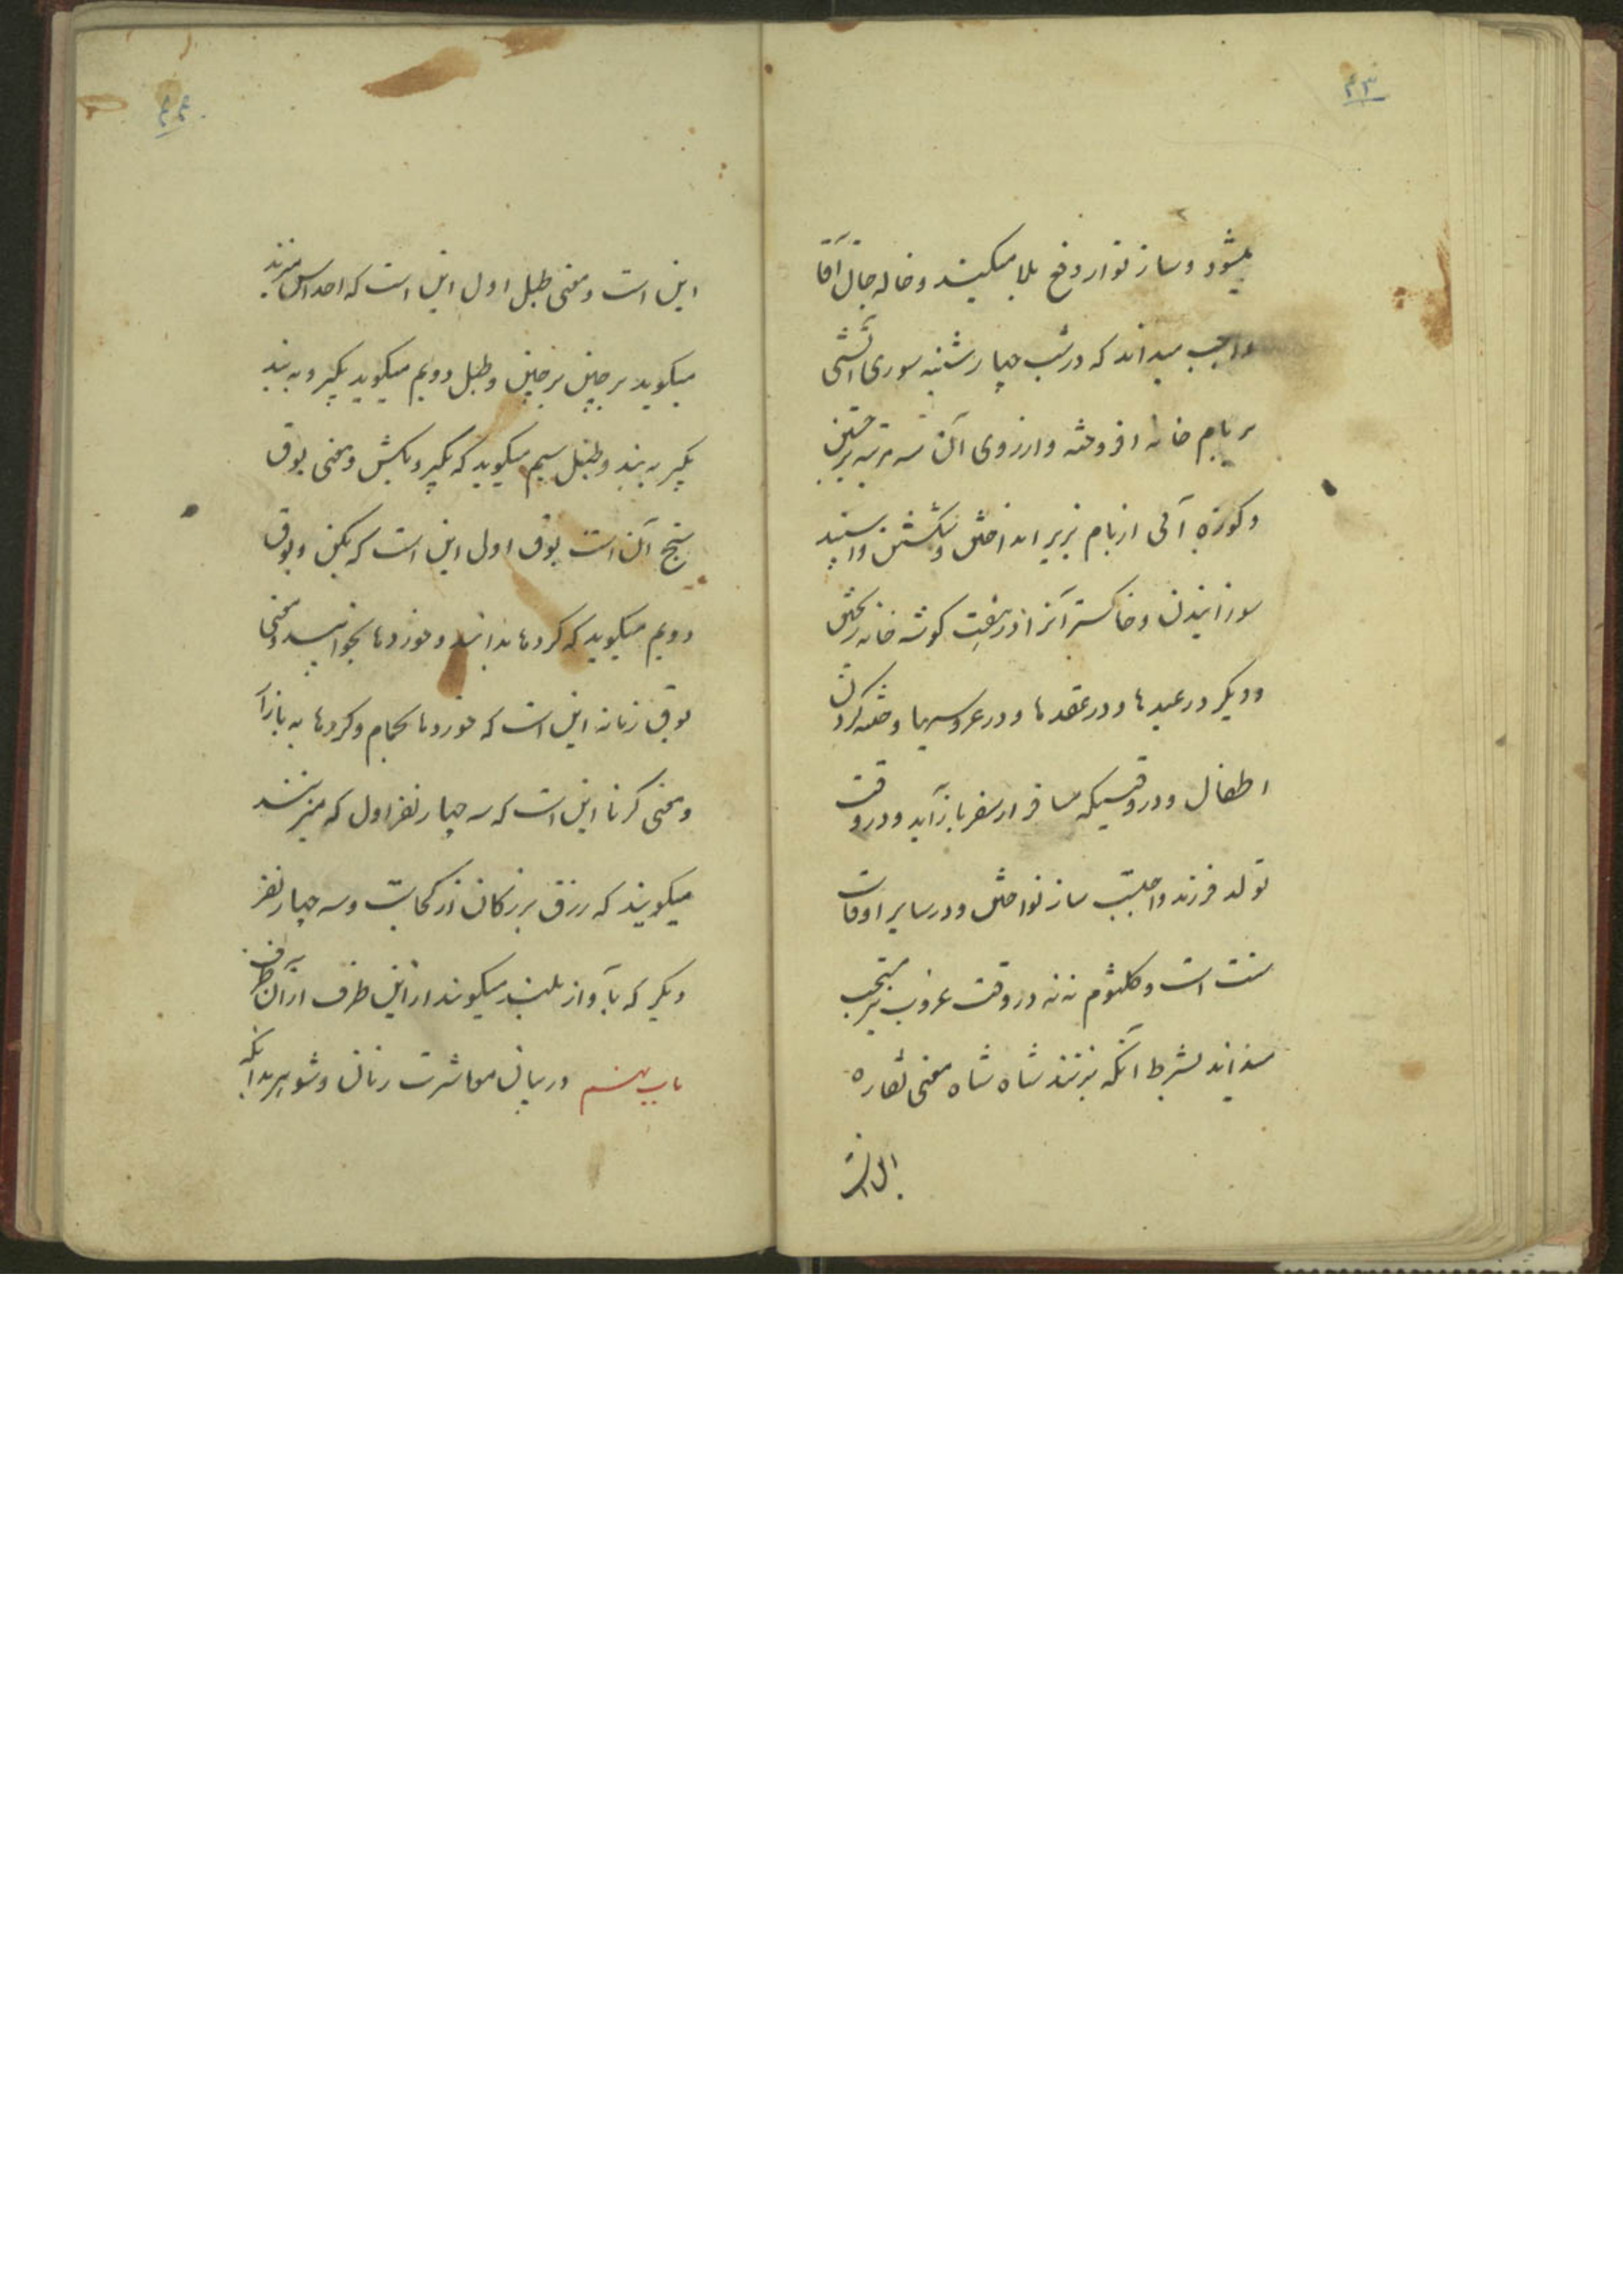 ۴۳
میشود و ساز نواز دفع بلا میکنند و خاله جان آقا
واجب میداند که در شب چهارشنبه سوری آتشی
بر بام خانه افروخته و از روی آن سه مرتبه برجستن
و کوزه آبی از بام بزیر انداختن و شکستن و اسپند
سوزانیدن و خاکستر آنرا در هفت کوشه خانه ریختن
و دیکر در عیدها و در عقدها و در عروسیها و ختنه کردن
اطفال و در وقتیکه مسافر از سفر باز آید و در وقت
تولد فرزند واجبست ساز نواختن و در سایر اوقات
سنت است و کلثوم ننه در وقت غروب نیز مستحب
میداند بشرط آنکه بزنند شاه شاه معنی نقاره
۴۴
این است و معنی طبل اول این است که
میکوید برچین برچین و طبل دویم میکوید بکیر و به بند
بکیر به بند و طبل سیم میکوید که بکیر و بکش و معنی بوق
سنج آن است بوق اول این است که بکن و بوق
دویم میکوید که کرده‌ها بدانید و خورده‌ها بخوابید و معنی
بوق زنانه این است که خورده‌ها بحمام و کرده‌ها به بازار
و معنی کرنا این است که سه چهار نفر اول که میزنند
میکویند که رزق بزرکان از کجاست و سه چهار نفر
دیکر که بآواز بلند میکویند از این طرف از آن طرف
باب در بیان معاشرت زنان و شوهر بدانکه